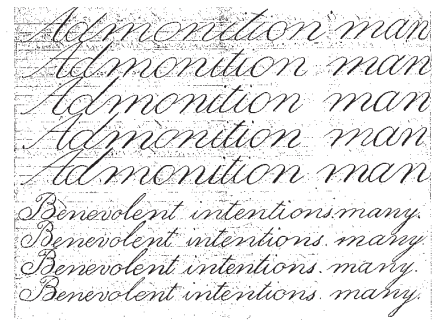 Admonition man
Admonition man
Admonition man
Admonition man
Admonition man
Benevolent intentions. many.
Benevolent intentions. many.
Benevolent intentions. many.
Benevolent intentions. many.